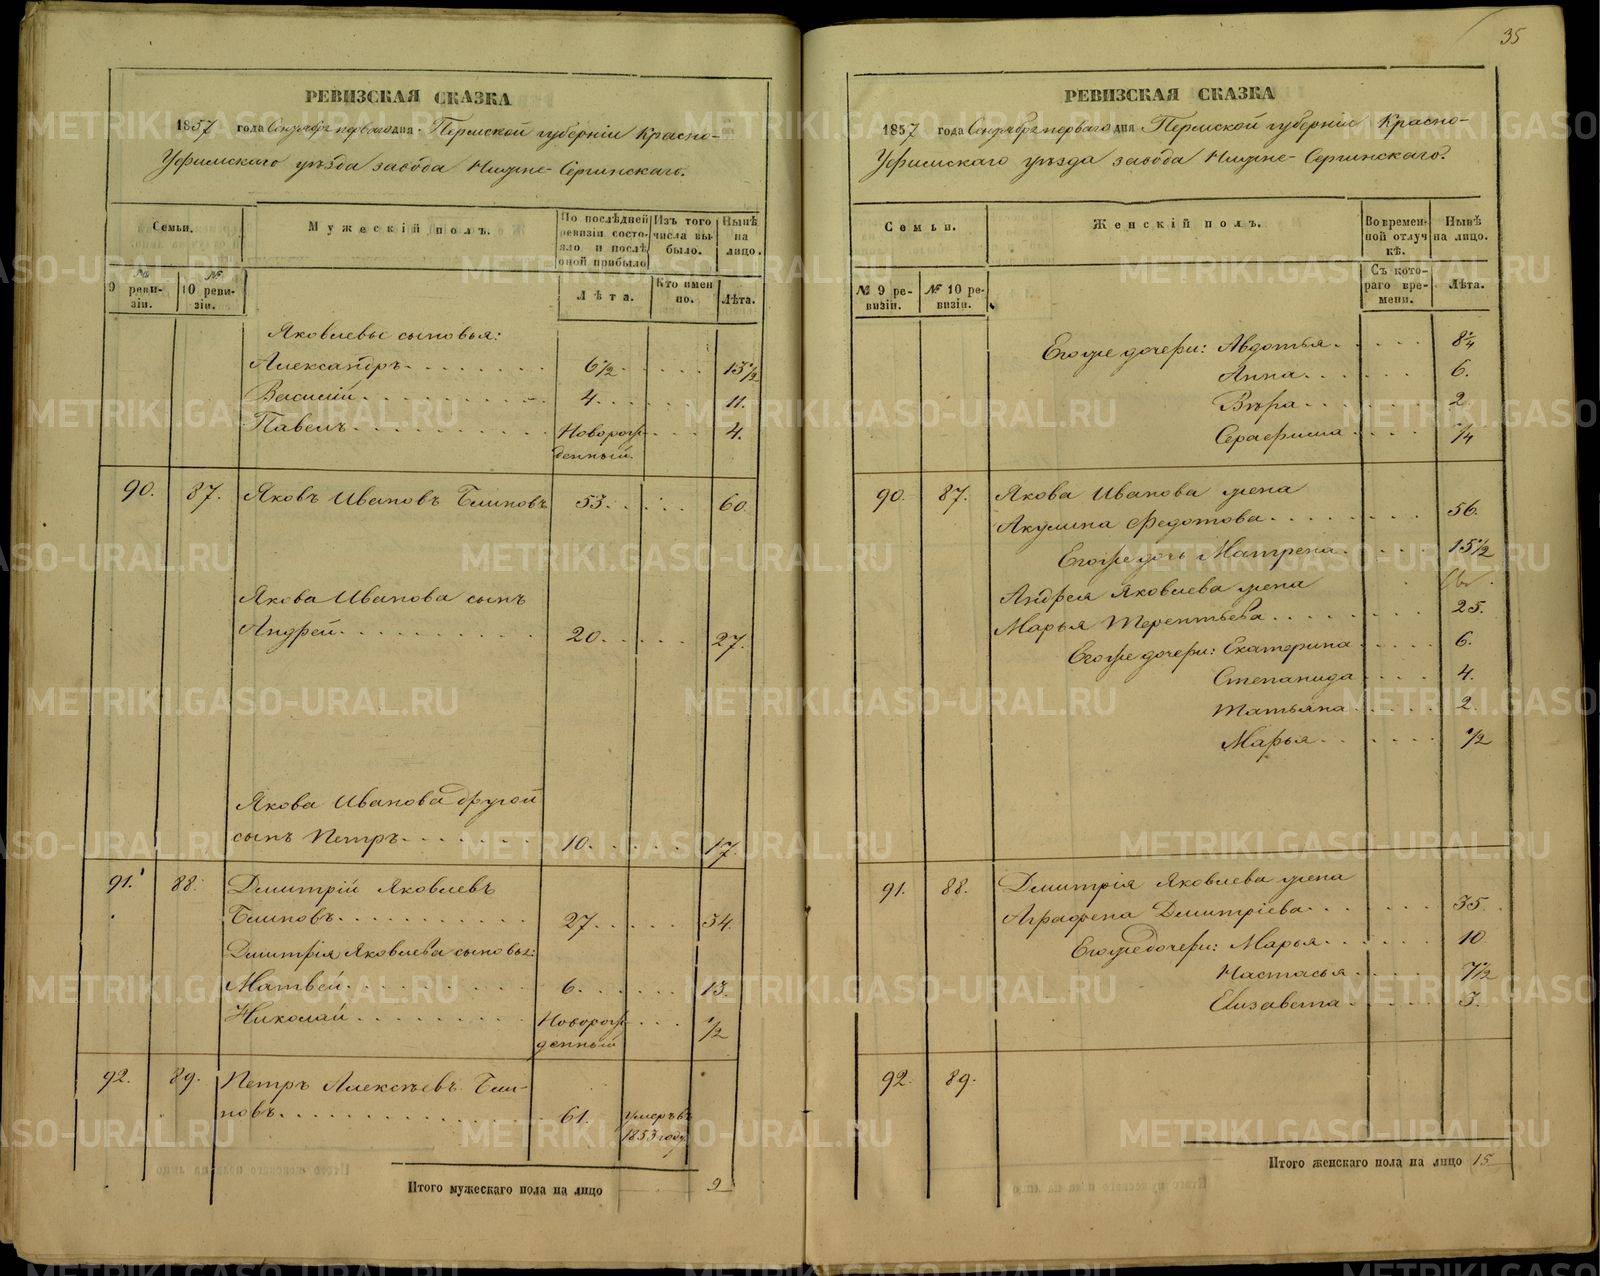 РЕВИЗСКАЯ СКАЗКА
1857 года Сентября перваго дня. Пермской губерніи Красно-
Уфимскаго уѣзда завода Нижне-Сергинскаго.
Семьи.
Мужескій полъ.
По послѣдней ревизіи состояло и послѣ оной прибыло
Изъ того числа выбыло.
Нынѣ на лицо.
№ 9 ревизіи.
№ 10 ревизіи.
Лѣта.
Кто имен но.
Лѣта.
Яковлевы сыновья:
Александръ 6 1/2 13 1/2
Василій 4. 11.
Павелъ Новорож- 4.
денный.
90. 87. Яковъ Ивановъ Блиновъ 53. 60.
Якова Иванова сынъ
Андрей 20. 27.
Якова Иванова другой
сынъ Петръ 10. 17.
91. 88. Дмитрій Яковлевъ
Блиновъ 27. 34.
Дмитрія Яковлева сыновья:
Матвей 6. 13.
Николай Новорож- 1/2
денный
92. 89. Петръ Алексѣевъ Бли-
новъ 61. умеръ въ
1853 году
Итого мужескаго пола на лицо 9
35
РЕВИЗСКАЯ СКАЗКА
1857 года Сентября перваго дня Пермской губерніи Красно-
Уфимскаго уѣзда завода Нижне-Сергинскаго.
Семьи.
Женскій полъ.
Во временной отлучкѣ.
Нынѣ на лицо.
№ 9 ревизіи.
№ 10 ревизіи.
Съ котораго времени.
Лѣта.
Его же дочери: Авдотья 8 1/4
Анна 6.
Вѣра 2
Серафима 1/4
90. 87. Якова Иванова жена
Акулина Федотова 56.
Его же дочь Матрена 15 1/2
Андрея Яковлева жена
Марья Терентьева 25.
Его же дочери: Екатерина 6.
Степанида 4.
Татьяна 2.
Марья 1/2
91. 88. Дмитрія Яковлева жена
Аграфена Дмитріева 35
Его же дочери: Марья 10
Настасья 7 1/2
Елизавета 3.
92. 89.
Итого женскаго пола на лицо 15
METRIKI.GASO-URAL.RU